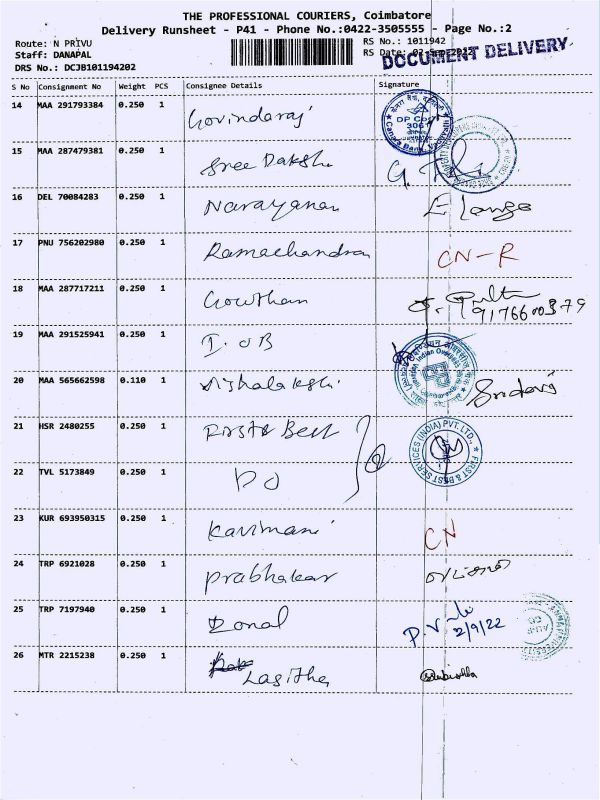 THE PROFESSIONAL COURIERS, Coimbatore
Delivery Runsheet - P41 - Phone No.:0422-3505555 - Page No.:2
Route: N PRIVU RS No.: 1011942
Staff: DANAPAL RS Date:
DOCUMENT DELIVERY
DRS No.: DCJB101194202
S No Consignment No Weight PCS Consignee Details Signature
14 MAA 291793384 0.250 1 Govindaraj
15 MAA 287479381 0.250 1 Sree Dakshi
16 DEL 70084283 0.250 1 Narayanan
17 PNU 756202980 0.250 1 Ramachandran CN-R
18 MAA 287717211 0.250 1 Gowtham
19 MAA 291525941 0.250 1 I.OB
20 MAA 565662598 0.110 1 Vishalakshi
21 HSR 2480255 0.250 1 First & Best
FIRST & BEST SERVICES (INDIA) PVT.LTD.,
22 TVL 5173849 0.250 1 DO
23 KUR 693950315 0.250 1 Kavimani CN
24 TRP 6921028 0.250 1 Prabhakar
25 TRP 7197940 0.250 1 Zonal 2/9/22
26 MTR 2215238 0.250 1 Lasitha